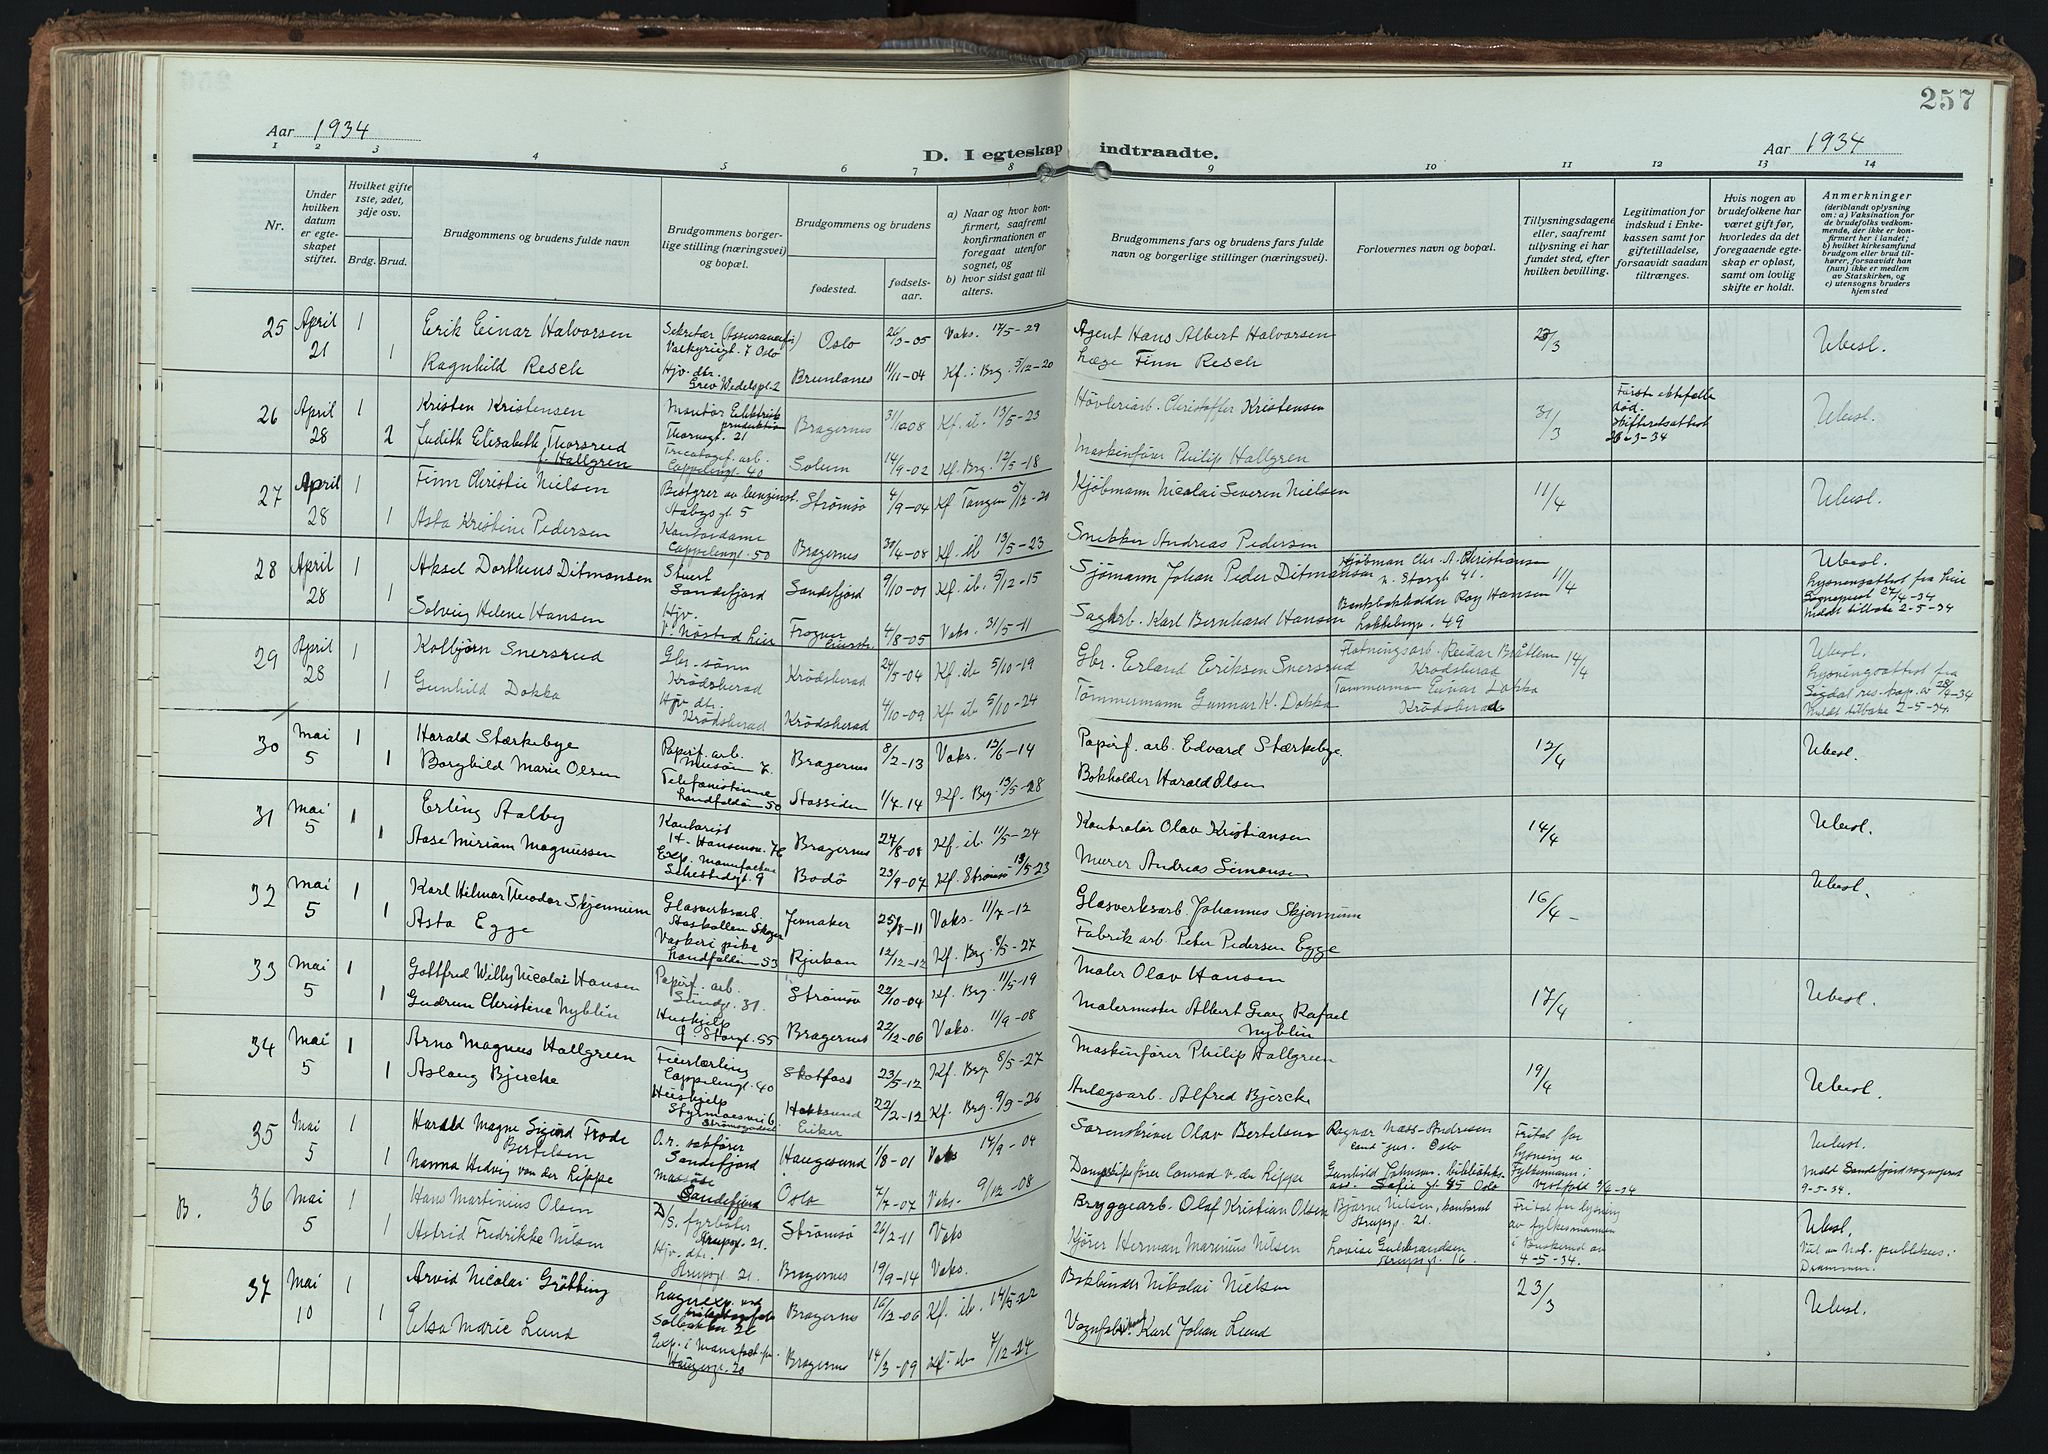 257
Aar 1934
D. I egteskap indtraadte.
Aar 1934
1 2 3 4 5 6 7 8 9 10 11 12 13 14
Nr.
Under hvilken datum er egteskapet stiftet.
Hvilket gifte 1ste, 2det, 3dje osv.
Brdg. Brud.
Brudgommens og brudens fulde navn
Brudgommens borgerlige stilling (næringsvei) og bopæl.
Brudgommens og brudens
fødested.
fødselsaar.
a) Naar og hvor konfirmert, saafremt konfirmationen er foregaat utenfor sognet, og
b) hvor sidst gaat til alters.
Brudgommens fars og brudens fars fulde navn og borgerlige stillinger (næringsvei).
Forlovernes navn og bopæl.
Tillysningsdagene eller, saafremt tillysning ei har fundet sted, efter hvilken bevilling.
Legitimation for indskud i Enkekassen samt for giftetilladelse, forsaavidt saadan tiltrænges.
Hvis nogen av brudefolkene har været gift før, hvorledes da det foregaaende egteskap er opløst, samt om lovlig skifte er holdt.
Anmerkninger
(deriblandt oplysning om: a) Vaksination for de brudefolks vedkommende, der ikke er konfirmert her i landet; b) hvilket kirkesamfund brudgom eller brud tilhører, forsaavidt han (hun) ikke er medlem av Statskirken, og c) utensogns bruders hjemsted
25 April 21 1 Erik Einar Halvorsen Sekretær Valkyriegt. 7 Oslo Oslo 26/3-05 Vaks. 17/5-29 Agent Hans Albert Halvorsen 23/3 Ubesl.
1 Ragnhild Resch Hjv. dtr. Grev Wedelspl. 2 Brunlanes 11/11-04 Kf. i Brg. 5/12-20 Læge Finn Resch
26 April 28 1 Kristen Kristensen Montør Thornegt. 21 Bragernes 31/10-08 Kf. ib. 13/5-23 Høvleriarb. Christoffer Kristensen 31/3 Første ektefelle død. Skifteretsattest 23-3-34 Ubesl.
2 Judith Elisabeth Thorsrud f. Hallgren Tricotagef. arb. Cappelensgt. 40 Solum 14/9-02 Kf. Brg. 12/5-18 Maskinfører Philip Hallgren
27 April 28 1 Finn Christie Nielsen Bestyrer av benzinst. 5 Strømsø 4/9-04 Kf Tangen 5/12-21 Kjøbmann Nicolai Severin Nielsen 11/4 Ubesl.
1 Asta Kristine Pedersen Kontordame Cappelengt. 50 Bragernes 30/4-08 Kf. ib 13/5-23 Snekker Andreas Pedersen
28 April 28 1 Aksel Dortheus Ditmansen Stuert Sandefjord Sandefjord 9/10-01 Kf. ib. 5/12-15 Sjømann Johan Peder Ditmansen Kjøbman Chr. A. Christiansen n. Storgt. 41. 11/4 Ubesl. Lysningsattest fra Lier Sogneprest 27/4-34 Meldt tilbake 2-5-34
1 Solveig Helene Hansen Hjv. V. Nøsted Lier Frogner Lier 4/8-05 Vaks. 31/5-11 Sagarb. Karl Bernhard Hansen Bankbokholder Roy Hansen 49
29 April 28 1 Kolbjørn Snersrud Gbr. sønn Krødsherad Krødsherad 24/5-04 Kf ib 5/10-19 Gbr. Erland Eriksen Snersrud Fløtningsarb. Reidar Bråtlem Krødsherad 14/4 Ubesl. Lysningsattest fra Sigdal res. kap. av 28/4-34 Meldt tilbake 2-5-34.
1 Gunhild Dokka Hjv dtr. Krødsherad Krødsherad 4/10-09 Kf ib 5/10-24 Tømmermann Gunnar K. Dokka Tømmerman Einar Dokka Krødsherad
30 Mai 5 1 Harald Stærkebye Papirf. arb. Bragernes 8/2-13 Vaks. 12/6-14 Papirf. arb. Edvard Stærkebye. 12/4 Ubesl.
1 Borghild Marie Olsen Telefonistinne Landfalløin 50 1/4-14 Kf. Brg. 13/5-28 Bokholder Harald Olsen
31 Mai 5 1 Erling Aalby Kontorist Bragernes 27/8-08 Kf. ib. 11/5-24 Kontrolør Olav Kristiansen 14/4 Ubesl.
1 Aase Miriam Magnussen Exp. manufaktur 9 Bodø 23/9-07 Kf. Strømsø 13/5-23 Murer Andreas Simonsen
32 Mai 5 1 Karl Hilmar Theodor Skjennum Glasverksarb. Skoger Jevnaker 25/8-11 Vaks. 11/7-12 Glasverksarb. Johannes Skjennum 16/4 Ubesl.
1 Asta Egge Vaskeri pike Landfalløin 53 Rjukan 12/12-12 Kf. Brg. 8/5-27 Fabrik arb. Peter Pedersen Egge
33 Mai 5 1 Gottfred Willy Nicolai Hansen Papirf. arb. Sundgt. 31. Strømsø 22/10-04 Kf. Brg 11/5-19 Maler Olav Hansen 17/4 Ubesl.
1 Gudrun Christine Nyblin Hushjelp Ø. Storgt. 55 Bragernes 22/12-06 Vaks. 11/9-08 Malermester Albert Georg Rafael Nyblin
34 Mai 5 1 Arno Magnus Hallgreen Feierlærling Cappelengt. 40 Skotfoss 23/5-12 Kf. Brg 8/5-27 Maskinfører Philip Hallgreen 19/4 Ubesl.
1 Aslaug Bjercke Hushjelp Styrmoesvei 6 Hokksund Eiker 22/2-12 Kf. Brg. 9/9-26 Anlægsarb. Alfred Bjercke
35 Mai 5 1 Harald Magne Sigurd Frode Bertelsen O.r. sakfører Sandefjord Haugesund 1/8-01 Vaks 17/9-04 Sorenskriver Olav Bertelsen Ragnar Næss-Andresen cand. jur. Oslo Frital for lysning av Fylkesmann i Vestfold 9/4-34 Ubesl. Meldt Sandefjord sogneprest 9-5-34.
1 Nanna Hedvig von der Rippe Massøse Sandefjord Oslo 7/7-07 Vaks. 9/12-08 Dampskipsfører Conrad v. der Rippe Gunhild Johnsen, biblioteks ass. Sofies gt. 85 Oslo
B. 36 Mai 5 1 Hans Martinius Olsen D/S. fyrbøter 21. Strømsø 26/2-11 Vaks Bryggearb. Olaf Kristian Olsen Bjarne Nielsen, kontorist 21. Frital for lysning av fylkesmannen i Buskerud av 4-5-34. Ubesl. Viet av Not. publikus i Drammen.
1 Astrid Fredrikke Nilsen Hjv. dtr. 21. Bragernes 19/9-14 Vaks. Kjører Herman Marinius Nilsen Lovise Gulbrandsen 16.
37 Mai 10 1 Arvid Nicolai Grøtting Lagerexp. Bragernes 16/12-06 Kf. ib. 14/5-22 Bokbinder Nikolai Nielsen 23/3 Ubesl.
1 Elsa Marie Lund Exp. i Manufakt. Haugesgt. 20 Bragernes 14/3-09 Kf. ib. 7/12-24 Karl Johan Lund